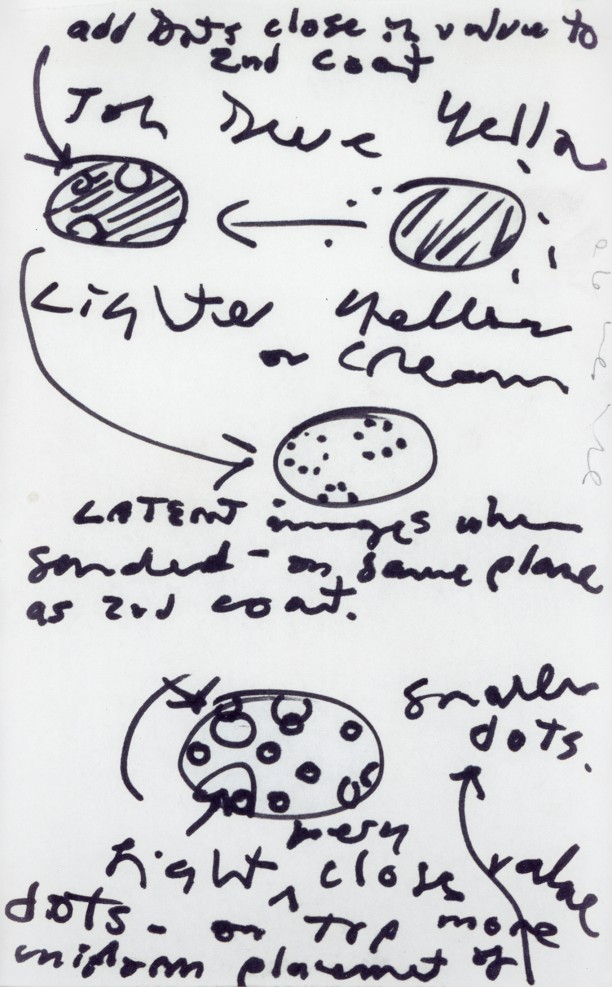 add Dots close in value to
2nd coat
Yello
Lighter yellow
or cream
LATENT images when
sanded - on same plane
as 2nd coat.
smaller
dots.
very
Light ^ close value
dots - on top more
uniform placement of